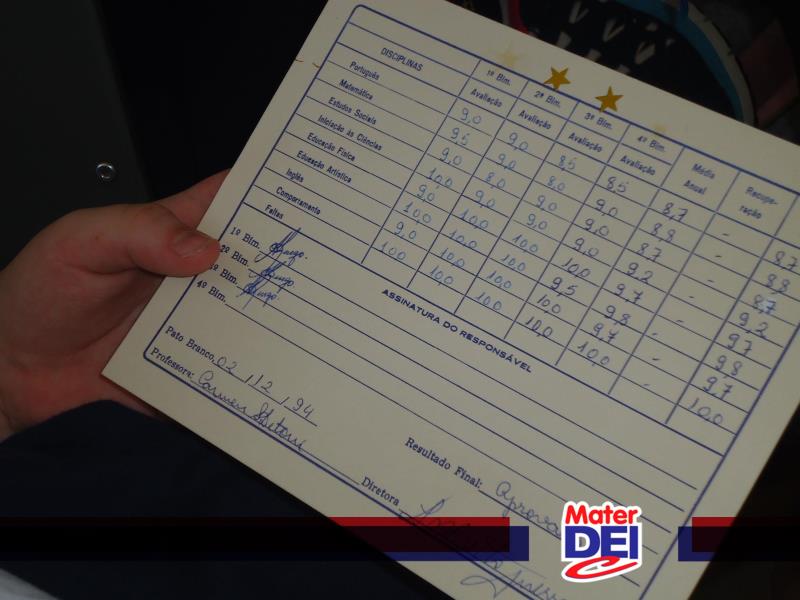 DISCIPLINAS 1º Bim. 2º Bim. 3º Bim. 4º Bim. Média Anual Recupe-ração
Avaliação Avaliação Avaliação Avaliação
Português 9,0 9,0 8,5 8,5 8,7 - 8,7
Matemática 9,5 9,0 8,0 9,0 8,8 - 8,8
Estudos Sociais 9,0 8,0 9,0 9,0 8,7 - 8,7
Iniciação às Ciências 10,0 9,0 9,0 9,0 9,2 - 9,2
Educação Física 9,0 10,0 10,0 10,0 9,7 - 9,7
Educação Artística 10,0 10,0 10,0 9,5 9,8 - 9,8
Inglês 9,0 10,0 10,0 10,0 9,7 - 9,7
Comportamento 10,0 10,0 10,0 10,0 10,0 - 10,0
Faltas
ASSINATURA DO RESPONSÁVEL
1º Bim.
2º Bim.
3º Bim.
4º Bim.
Pato Branco, 02 / 12 / 94
Resultado Final: aprova
Professora: Carmen
Diretora
Mater
DEI